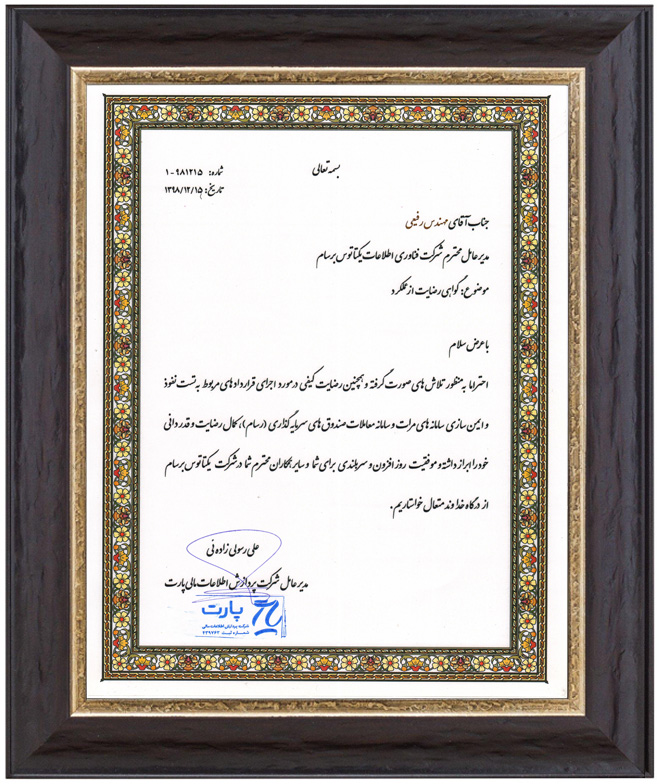 بسمه تعالی
شماره: ۹۸۱۲۱۵-۱
تاریخ: ۱۳۹۸/۱۲/۱۵
جناب آقای مهندس رفیعی
مدیر عامل محترم شرکت فناوری اطلاعات یکتا توس برسام
موضوع: گواهی رضایت از عملکرد
با عرض سلام
احتراما به منظور تلاش های صورت گرفته و همچنین رضایت کیفی در مورد اجرای قرارداد های مربوط به تست نفوذ
و ایمن سازی سامانه های مرات و سامانه معاملات صندوق های سرمایه گذاری (رسام)، کمال رضایت و قدردانی
خود را ابراز داشته و موفقیت روز افزون و سربلندی برای شما و سایر همکاران محترم شما در شرکت یکتا توس برسام
از درگاه خداوند متعال خواستاریم.
علی رسولی زاده نی
مدیر عامل شرکت پردازش اطلاعات مالی پارت
پارت
شرکت پردازش اطلاعات مالی
شماره ثبت ۲۳۹۷۶۳